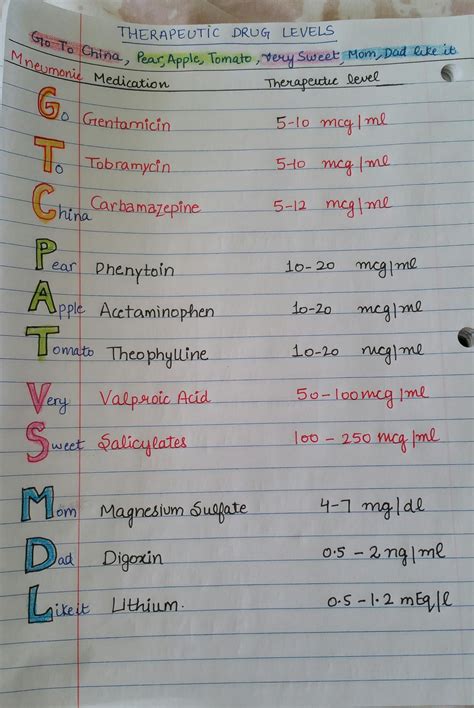 THERAPEUTIC DRUG LEVELS
Go To China, Pear, Apple, Tomato, very Sweet Mom, Dad like it
Mneumonic Medication Therapeutic level
Go Gentamicin 5-10 mcg/ml
To Tobramycin 5-10 mcg/ml
China Carbamazepine 5-12 mcg/ml
Pear Phenytoin 10-20 mcg/ml
Apple Acetaminophen 10-20 mcg/ml
Tomato Theophylline 10-20 mcg/ml
Very Valproic Acid 50-100mcg/ml
Sweet Salicylates 100 - 250 mcg/ml
Mom Magnesium Sulfate 4-7 mg/dl
Dad Digoxin 0.5 - 2 ng/ml
Like it Lithium. 0.5 - 1.2 mEq/l